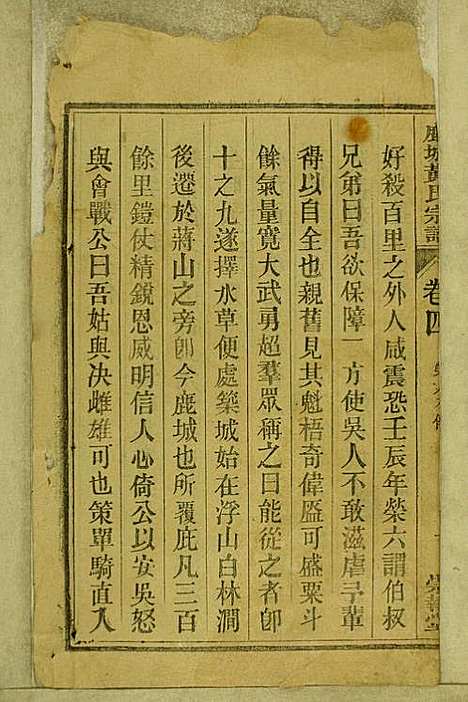 鹿城黃氏宗譜
卷四
好殺百里之外人咸震恐壬辰年榮六謂伯叔
兄弟曰吾欲保障一方使吳人不敢滋虐予輩
得以自全也親舊見其魁梧奇偉盔可盛粟斗
餘氣量寬大武勇超羣眾稱之曰能從之者卽
十之九遂擇水草便處築城始在浮山白林澗
後遷於蔣山之旁卽今鹿城也所覆庇凡三百
餘里鎧仗精銳恩威明信人心倚公以安吳怒
與會戰公曰吾姑與决雌雄可也策單騎直入